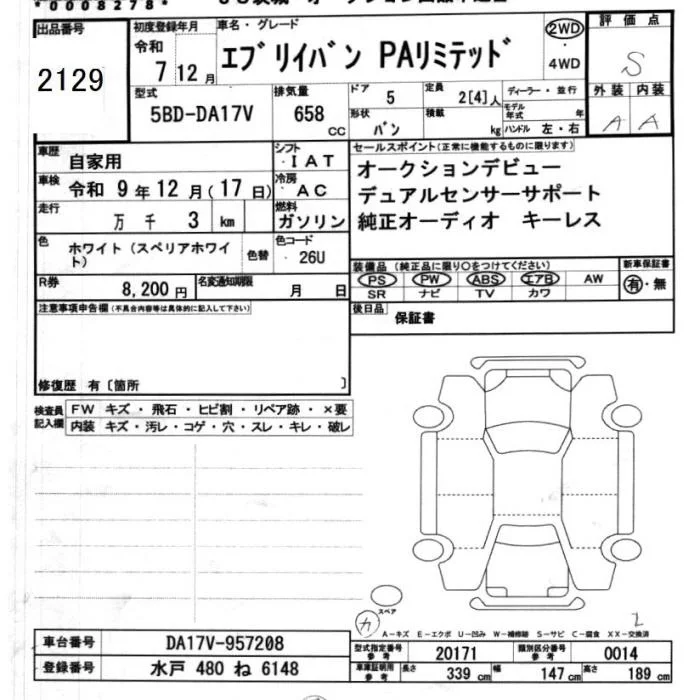 *0008278*
出品番号
2129
初度登録年月
令和
7 12 月
車名・グレード
エブリイバン PAリミテッド
2WD
・
4WD
評価点
S
外装 内装
A A
型式
5BD-DA17V
排気量
658
CC
ドア
5
形状
バン
定員
2[4]人
積載
kg
ディーラー・並行
モデル
年式 年
ハンドル 左・右
車歴
自家用
シフト
・IAT
車検 令和 9 年 12 月(17 日)
冷房
・AC
走行
万 千 3 km
燃料
ガソリン
色
ホワイト(スペリアホワイ
ト)
色替
色コード
・26U
セールスポイント(正常に機能するものに限ります)
オークションデビュー
デュアルセンサーサポート
純正オーディオ キーレス
R券
8,200 円
名変通知期限
月 日
装備品(純正品に限り○をつけてください)
PS PW ABS エアB AW
SR ナビ TV カワ
新車保証書
有・無
注意事項申告欄(不具合内容等は具体的に記入して下さい)
後日品
保証書
修復歴 有〔箇所 〕
検査員
記入欄
FW キズ・飛石・ヒビ割・リペア跡・×要
内装 キズ・汚レ・コゲ・穴・スレ・キレ・破レ
スペア
A-キズ E-エクボ U-凹み W-補修跡 S-サビ C-腐食 XX-交換済
車台番号
DA17V-957208
登録番号
水戸 480 ね 6148
型式指定番号
参考
20171
類別区分番号
参考
0014
車庫証明用
参考
長さ
339 cm
幅
147 cm
高さ
189 cm